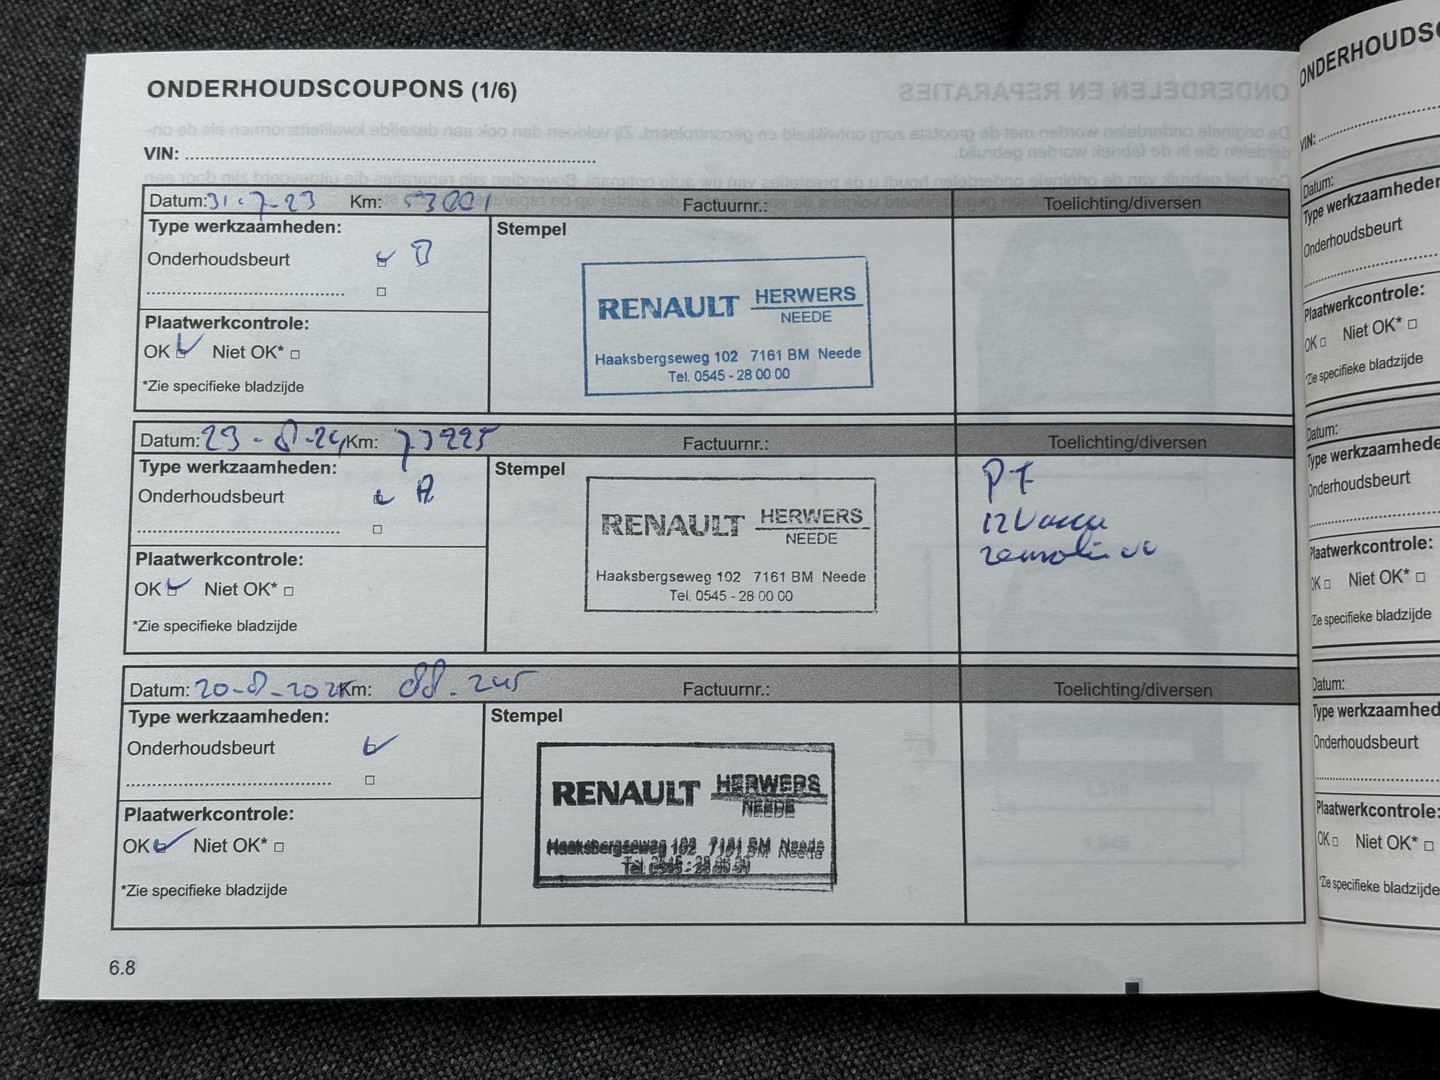 ONDERHOUDSCOUPONS (1/6)
VIN:
Datum: 31-7-23 Km: 53001 Factuurnr.: Toelichting/diversen
Type werkzaamheden:
Onderhoudsbeurt B
Stempel
RENAULT HERWERS
NEEDE
Haaksbergseweg 102 7161 BM Neede
Tel. 0545 - 28 00 00
Plaatwerkcontrole:
OK Niet OK*
*Zie specifieke bladzijde
Datum: 29-8-24 Km: 73225 Factuurnr.: Toelichting/diversen
Type werkzaamheden:
Onderhoudsbeurt A
Stempel
RENAULT HERWERS
NEEDE
Haaksbergseweg 102 7161 BM Neede
Tel. 0545 - 28 00 00
Plaatwerkcontrole:
OK Niet OK*
*Zie specifieke bladzijde
Datum: 20-8-2025 Km: 88.245 Factuurnr.: Toelichting/diversen
Type werkzaamheden:
Onderhoudsbeurt
Stempel
RENAULT HERWERS
NEEDE
Haaksbergseweg 102 7161 BM Neede
Tel. 0545 - 28 00 00
Plaatwerkcontrole:
OK Niet OK*
*Zie specifieke bladzijde
6.8
VIN:
Datum:
Onderhoudsbeurt
Plaatwerkcontrole:
OK Niet OK*
*Zie specifieke bladzijde
Datum:
Onderhoudsbeurt
Plaatwerkcontrole:
OK Niet OK*
Zie specifieke bladzijde
Datum:
Onderhoudsbeurt
Plaatwerkcontrole:
OK Niet OK*
*Zie specifieke bladzijde